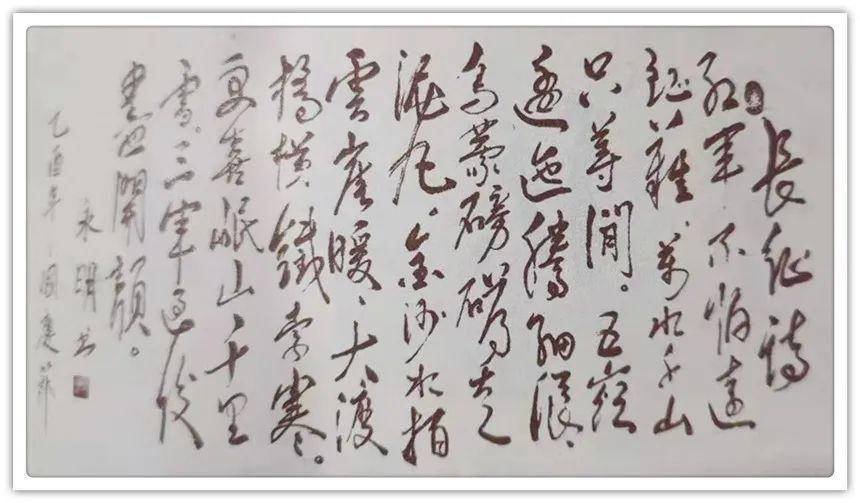 長征詩
红军不怕遠
征難萬水千山
只等閒。五嶺
逶迤騰細浪、
烏蒙磅礴走
泥丸。金沙水拍
雲崖暖、大渡
橋横鐵索寒。
更喜岷山、千里
雪、三军过後
盡開顏。
永明书
乙酉年國慶节